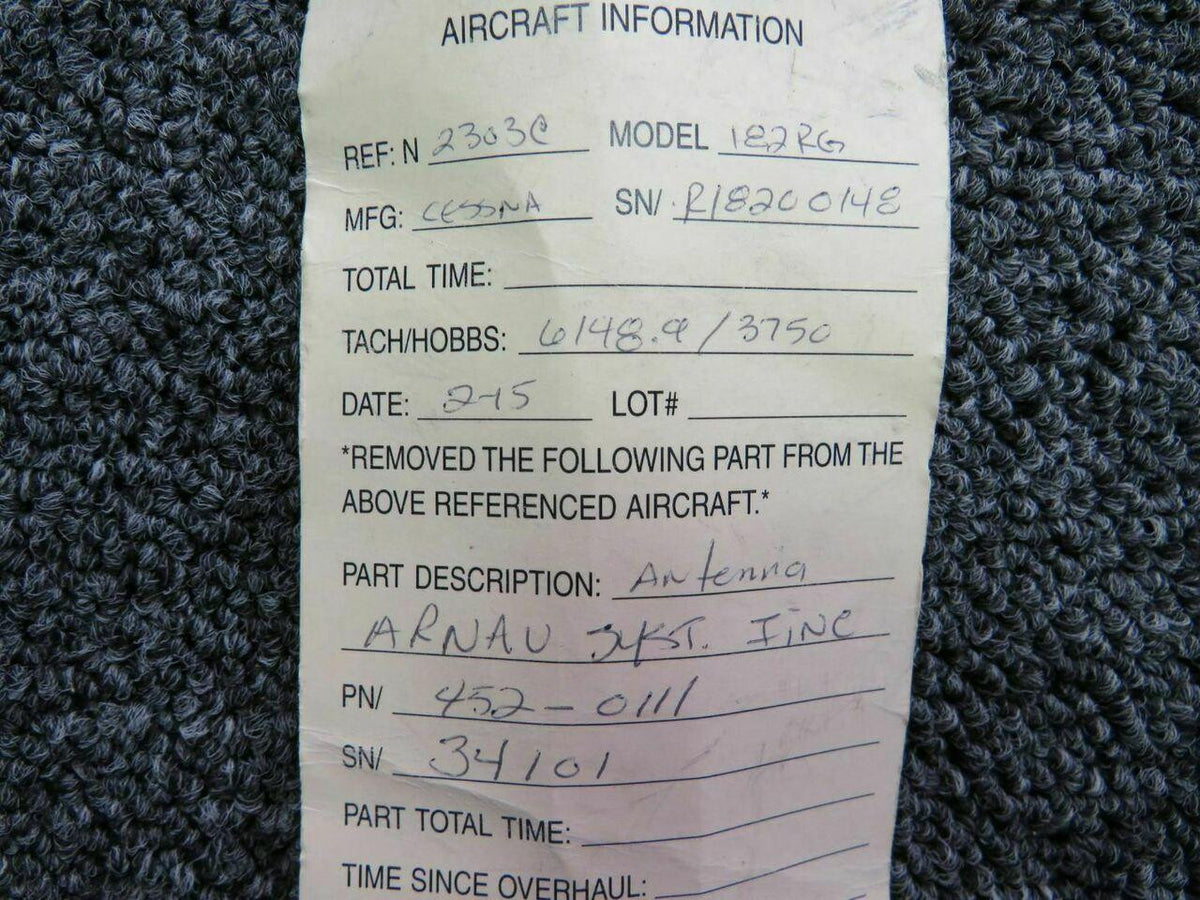 AIRCRAFT INFORMATION
REF: N 2303C MODEL 182RG
MFG: CESSNA SN/ R18200148
TOTAL TIME:
TACH/HOBBS: 6148.9/3750
DATE: 2-15 LOT#
*REMOVED THE FOLLOWING PART FROM THE
ABOVE REFERENCED AIRCRAFT.*
PART DESCRIPTION: Antenna
ARNAV SYST. INC
PN/ 452-0111
SN/ 34101
PART TOTAL TIME:
TIME SINCE OVERHAUL: